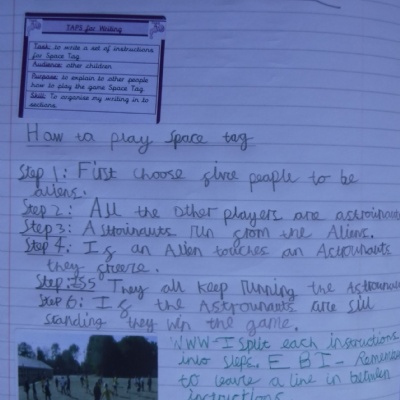 TAPS for Writing
Task: to write a set of instructions
for Space Tag
Audience: other children
Purpose: to explain to other people
how to play the game Space Tag
Skill: To organise my writing in to
sections.
How to play space tag
Step 1: First choose give people to be
aliens.
Step 2: All the other players are astroinaut
Step 3: Astroinauts run grom the Aliens.
Step 4: Ig an Alien touches an Actrounauts
they greeze.
Step 5 They all keep running the Astrounau
Step 6: Ig the Astrounauts are sill
standing they win the game.
WWW-I split each instructions
into steps. EBI - Remember
to leave a line in between
instructions